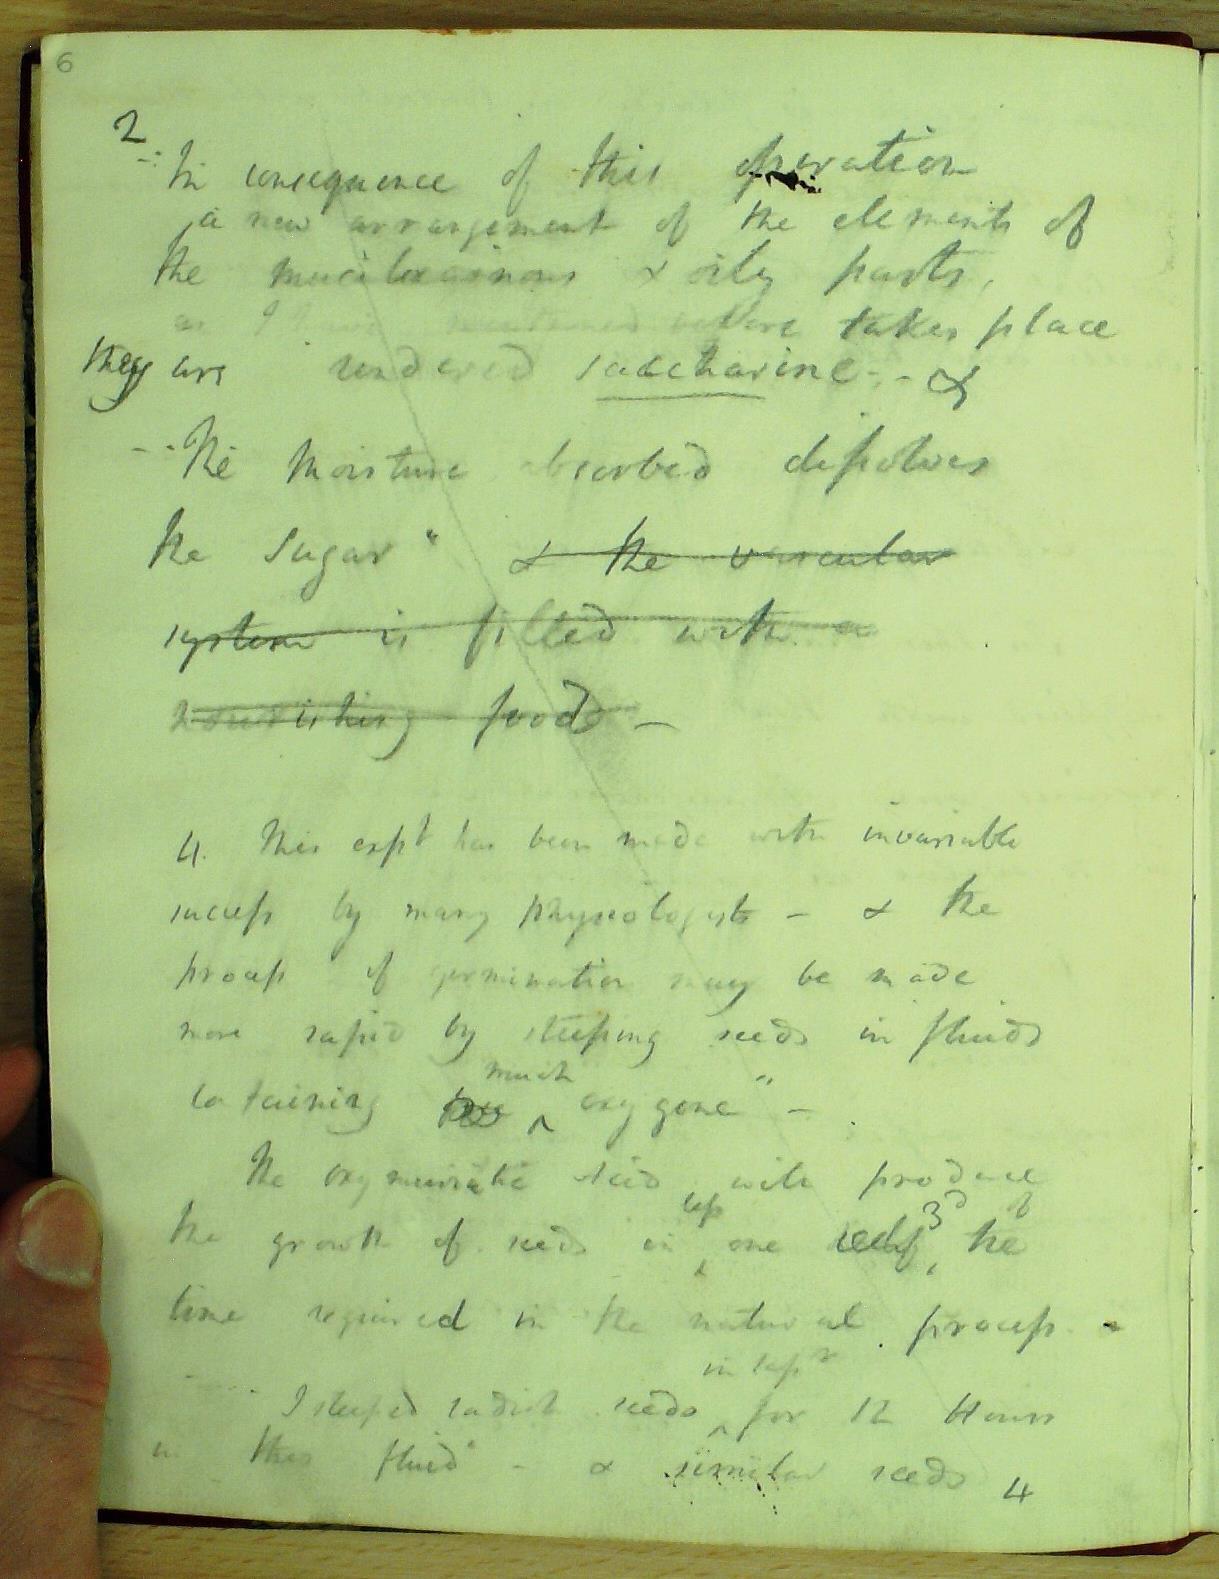 6
2
In consequence of this operation
a new arrangement of the elements of
the mucilaginous & oily parts,
as I have before takes place
they are rendered saccharine - - &
- The Moisture absorbed dissolves
the Sugar " & the vascular
system is filled with a
nourishing food -
4. This expt has been made with invariable
success by many physiologists - & the
process of germination may be made
more rapid by steeping seeds in fluids
cotaining much oxygene " -
The oxymuriatic Acid will produce
the growth of seeds in less one half 3d of the
time required in the natural process -
I steeped radish seeds for 12 Hours
in this fluid " - & similar seeds 4